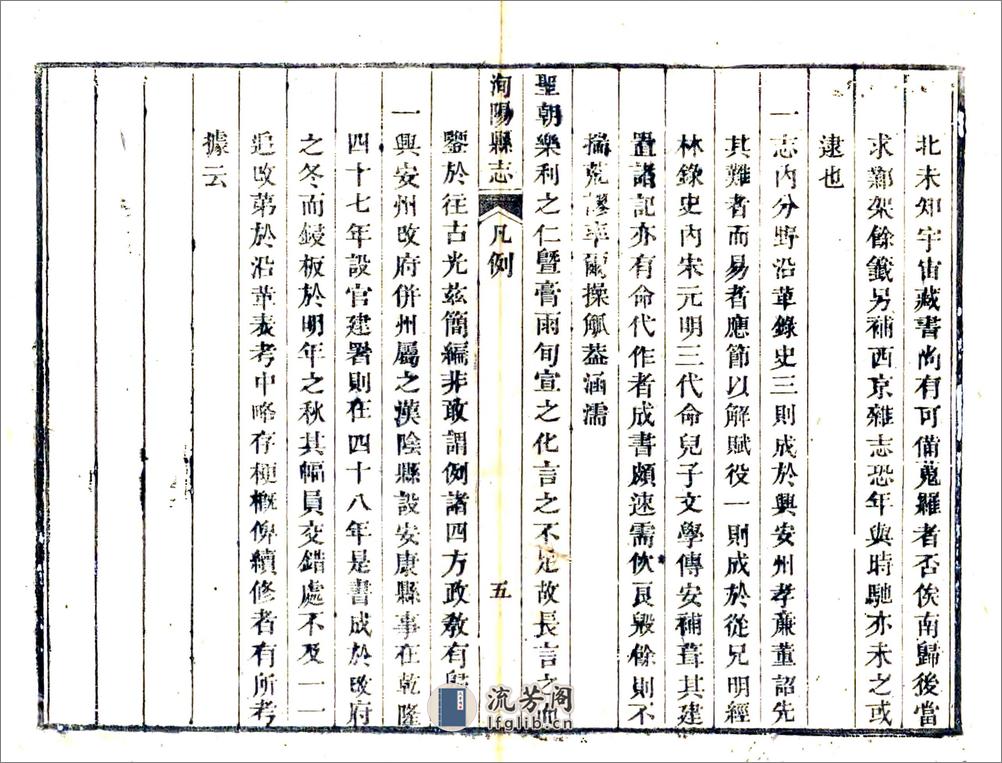 北未知宇宙藏書尚有可備蒐羅者否俟南歸後當
求鄴架餘籤另補西京雜志恐年與時馳亦未之或
逮也
一志內分野沿革錄史三則成於興安州孝廉董詔先
其難者而易者應節以解賦役一則成於從兄明經
林錄史內宋元明三代命兒子文學傳安補葺其建
置諸記亦有命代作者成書頗速需攸良毀餘則不
揣荒謬率爾操觚葢涵濡
聖朝樂利之仁曁膏雨旬宣之化言之不足故長言之
洵陽縣志 凡例 五
鑒於往古光茲簡編非敢謂例諸四方政敎有
一興安州改府併州屬之漢陰縣設安康縣事在乾隆
四十七年設官建署則在四十八年是書成於改府
之冬而鋟板於明年之秋其幅員交錯處不及一一
追改第於沿革表考中略存梗概俾續修者有所考
據云
流芳阁
lfglib.cn